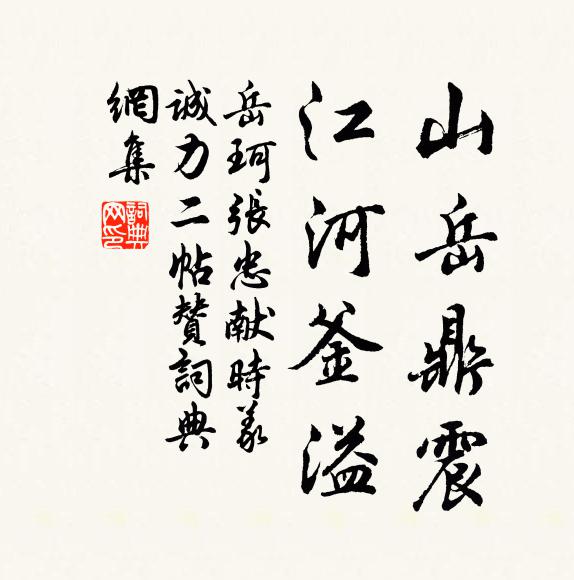 山岳鼎震
江河釜溢
岳珂張忠献時義
誠力二帖賛詞典
網集
詞典
网印